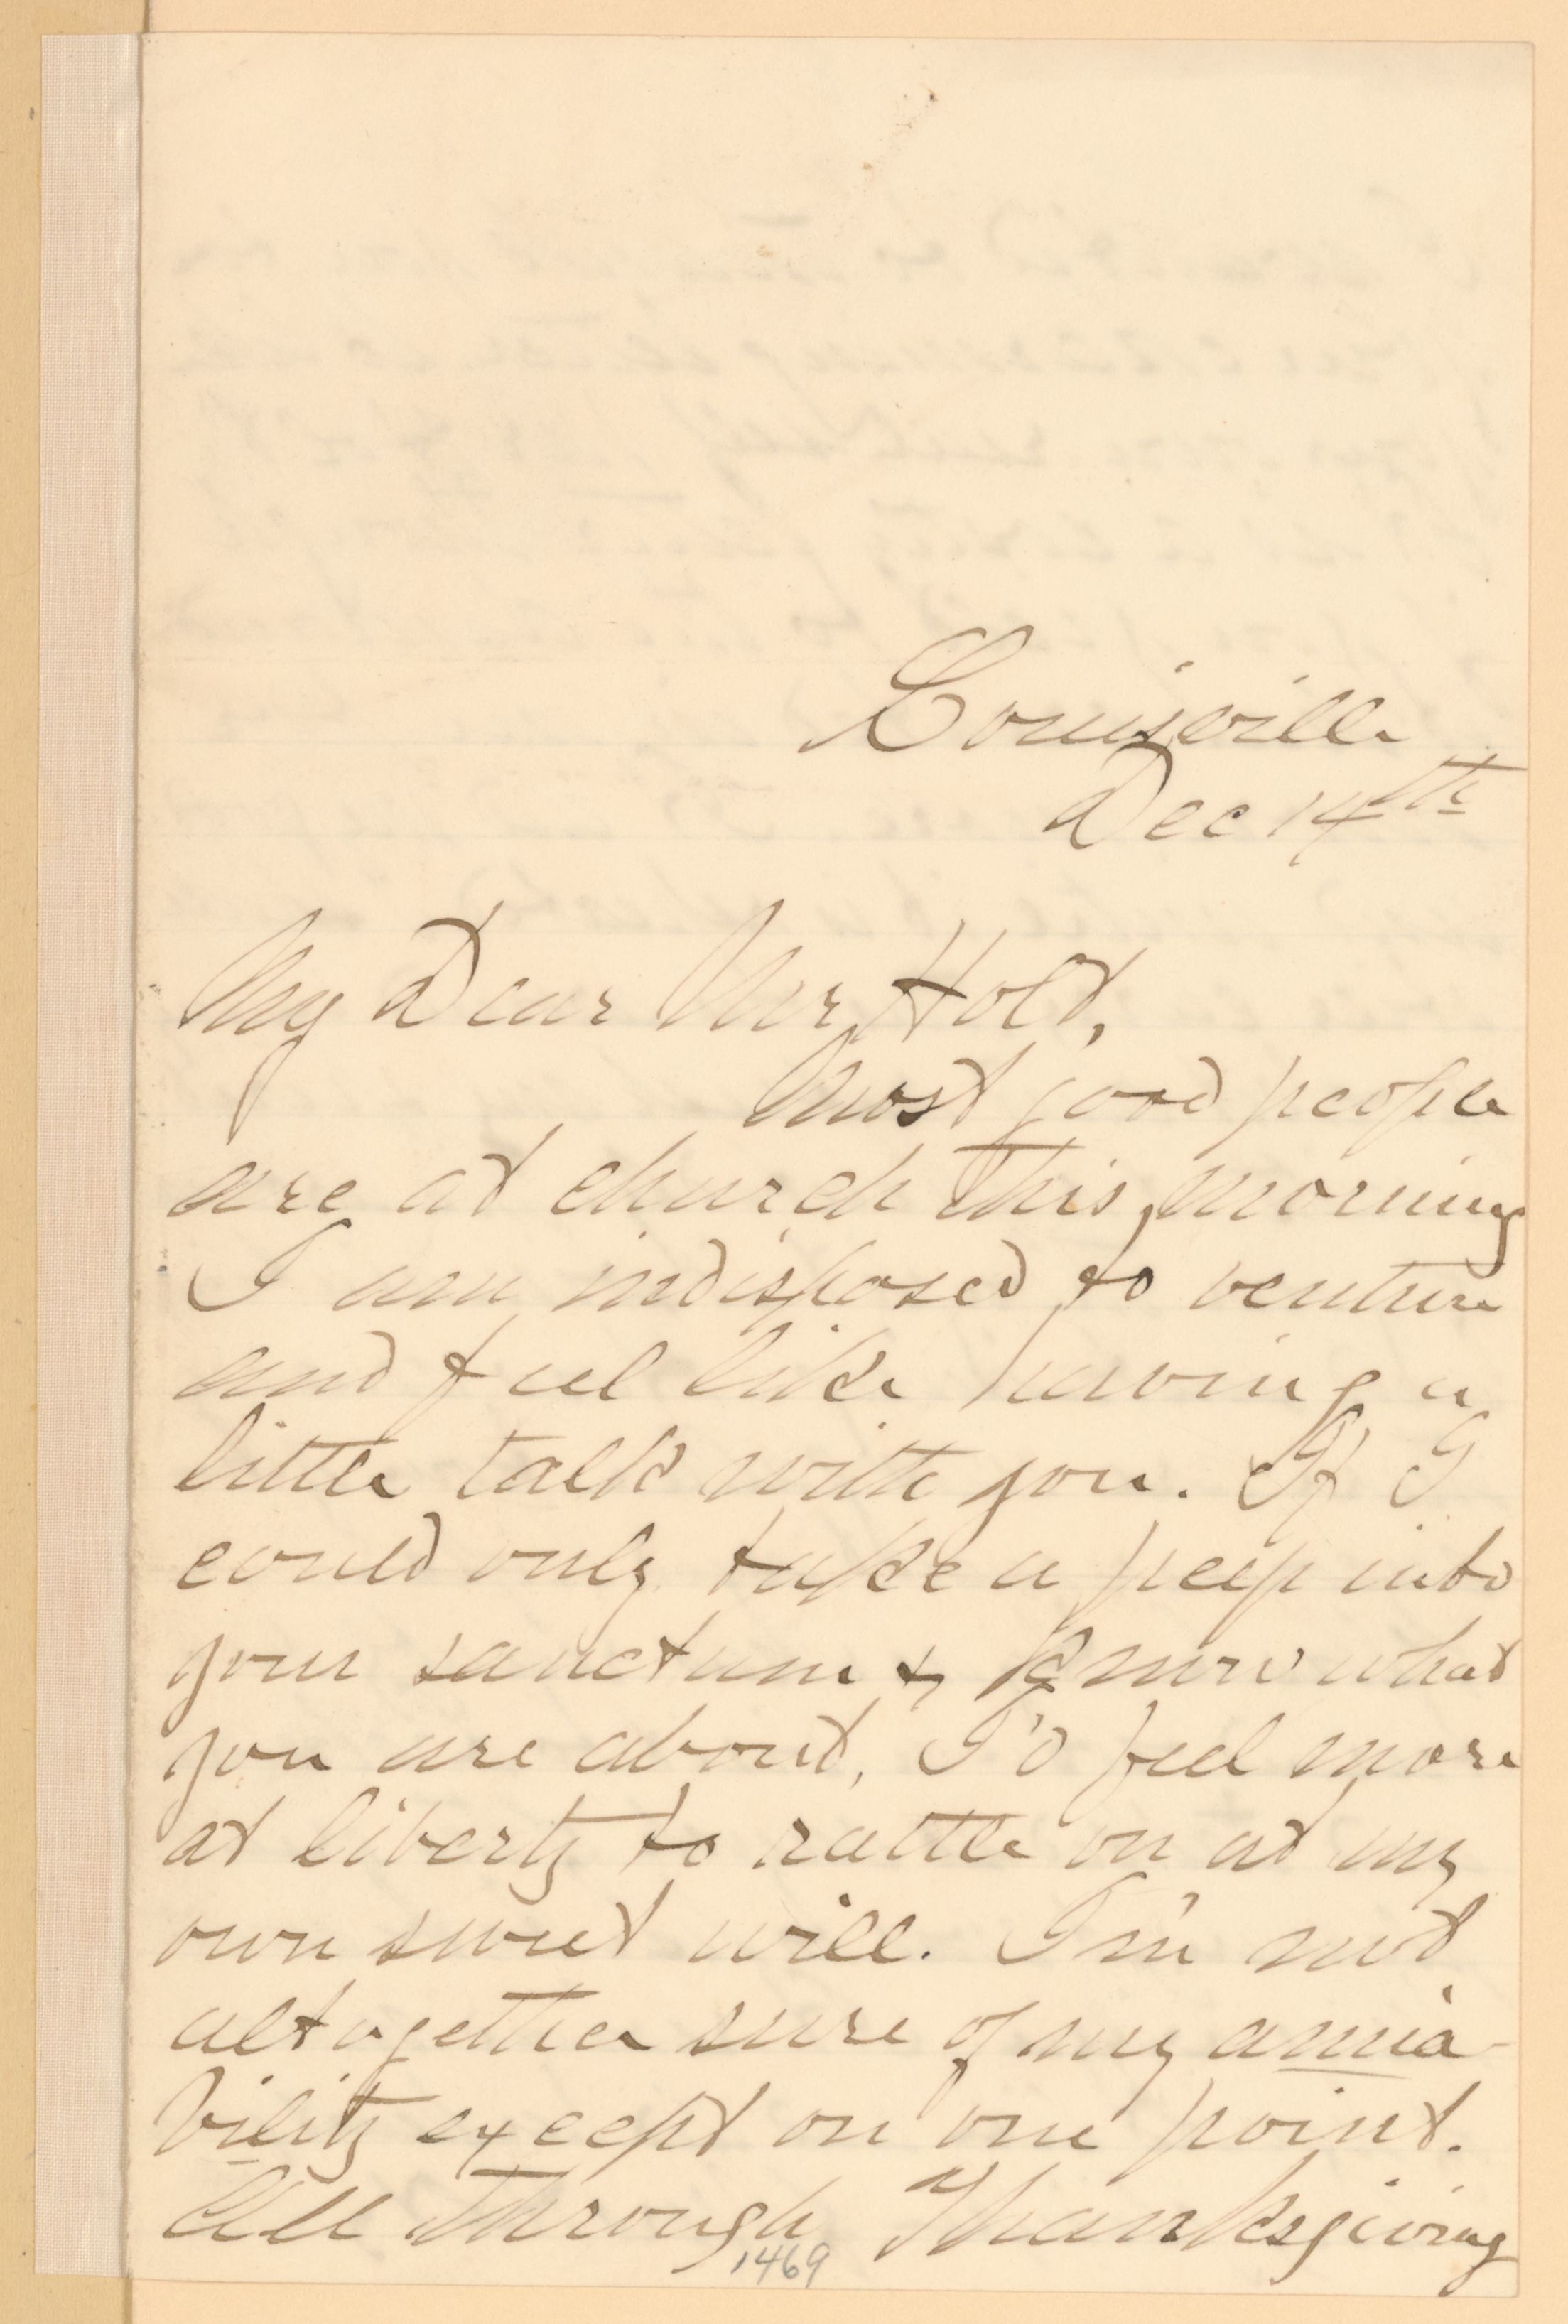 Louisville
Dec 14th
My Dear Mr Holt,
Most good people
are at church this morning
I am indisposed to venture
and feel like having a
little talk with you. If I
could only take a peep into
your sanctum & know what
you are about, I'd feel more
at liberty to rattle on at my
own sweet will. I'm not
altogether sure of my amia-
bility except on one point.
All through Thanksgiving
1469